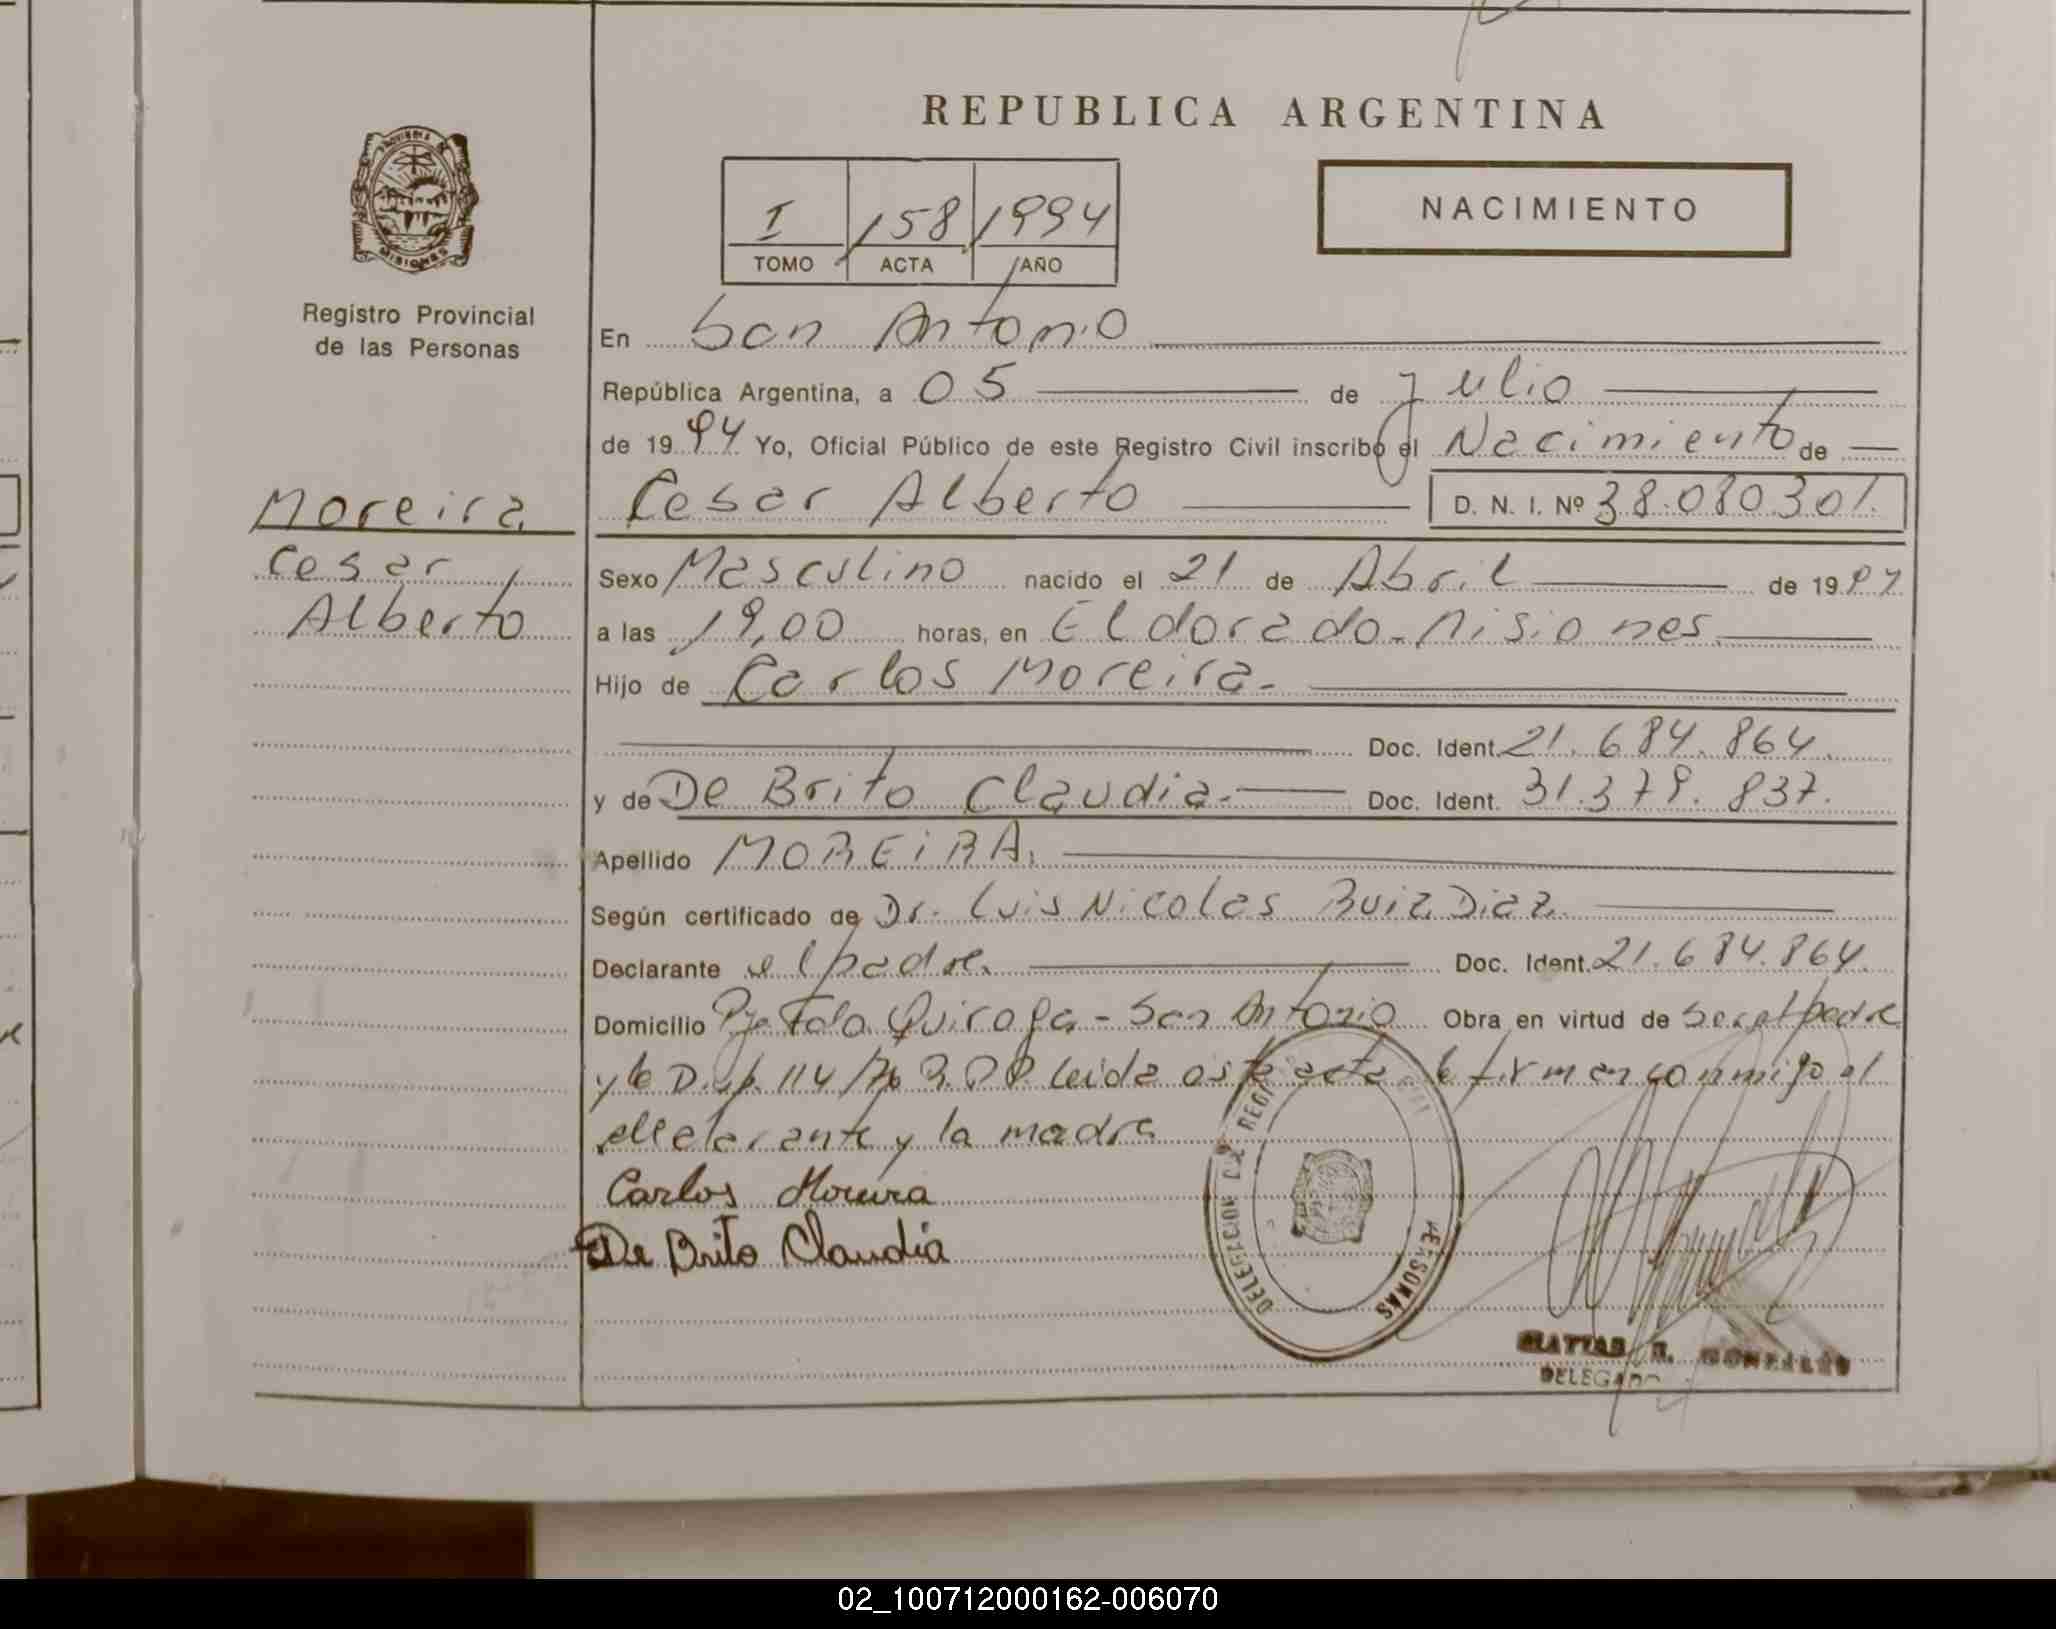 REPUBLICA ARGENTINA
PROVINCIA DE
MISIONES
Registro Provincial
de las Personas
I 158 1994
TOMO ACTA AÑO
NACIMIENTO
En San Antonio
República Argentina, a 05 de Julio
de 1994 Yo, Oficial Público de este Registro Civil inscribo el Nacimiento de
Moreira
Cesar
Alberto
Cesar Alberto D. N. I. Nº 38.080.301.
Sexo Masculino nacido el 21 de Abril de 1994
a las 19,00 horas, en Eldorado-Misiones
Hijo de Carlos Moreira.
Doc. Ident. 21.684.864.
y de De Brito Claudia. Doc. Ident. 31.379.837.
Apellido MOREIRA.
Según certificado de Dr. Luis Nicolas Ruiz Diaz.
Declarante el padre. Doc. Ident. 21.684.864.
Domicilio Pje Fdo. Quiroga - San Antonio Obra en virtud de ser el padre
y la Disp. 114/76 leida este acta la firman conmigo el
declarante y la madre
Carlos Moreira
De Brito Claudia
DELEGACION DEL REG PERSONAS
MATIAS R. GONZALEZ
DELEGADO
02_100712000162-006070